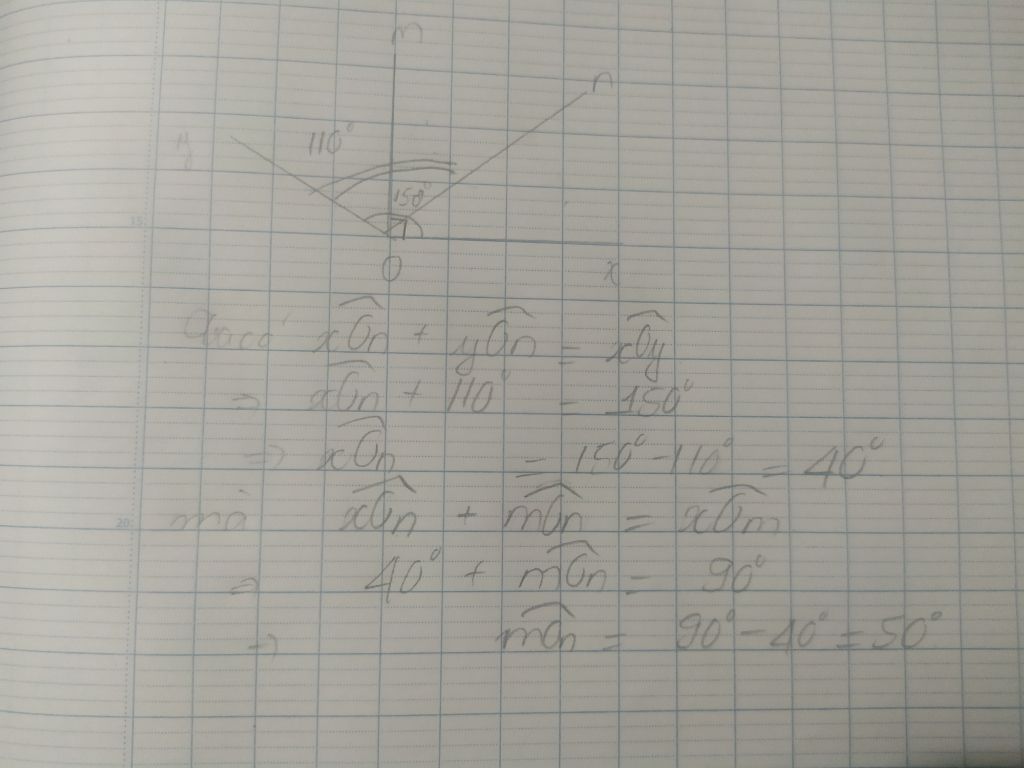 m
n
y
110°
150°
15
O
x
Ta có xOn + yOn = xOy
⇒ xOn + 110° = 150°
⇒ xOn = 150° - 110° = 40°
20 mà xOn + mOn = xOm
⇒ 40° + mOn = 90°
⇒ mOn = 90° - 40° = 50°